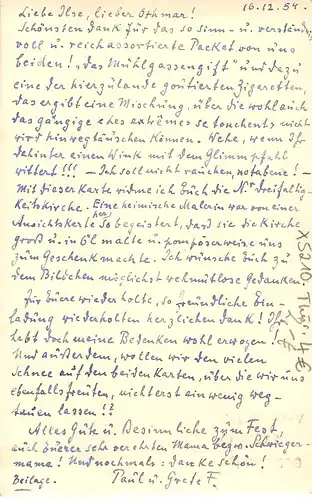 16.12.54.
Liebe Ilse, lieber Othmar!
Schönsten Dank für das so sinn- u. verständnis-
voll u. reich assortierte Packet von uns
beiden! „das Mühlgassengift" und dazu
eine der hierzulande goutierten Zigaretten,
das ergibt eine Mischung, über die wohl auch
das gängige ‹les extrêmes se touchent› nicht
wird hinwegtäuschen können. Wehe, wenn Ihr
dahinter einen Wink mit dem Glimmpfahl
wittert!!! – Ich soll nicht rauchen, notabene! –
Mit dieser Karte widme ich Euch die N. Dreifaltig-
keitskirche. Eine heimische Malerin war von einer
Ansichtskarte her so begeistert, daß sie die Kirche
groß u. in Öl malte u. pompöserweise uns
zum Geschenk machte. Ich wünsche Euch zu
dem Bildchen möglichst wehmutlose Gedanken.
Für Eure wiederholte, so freundliche Ein-
ladung wiederholten herzlichen Dank! Ihr
habt doch meine Bedenken wohl erwogen!
Und außerdem, wollen wir den vielen
Schnee auf den beiden Karten, über die wir uns
ebenfalls freuten, nicht erst ein wenig weg-
tauen lassen!?
Alles Gute u. Besinnliche zum Fest,
auch Eurer sehr verehrten Mama bezw. Schwieger-
mama! Und nochmals: danke schön!
Beilage. Paul u. Grete F.
XS210. Thür. 4 €